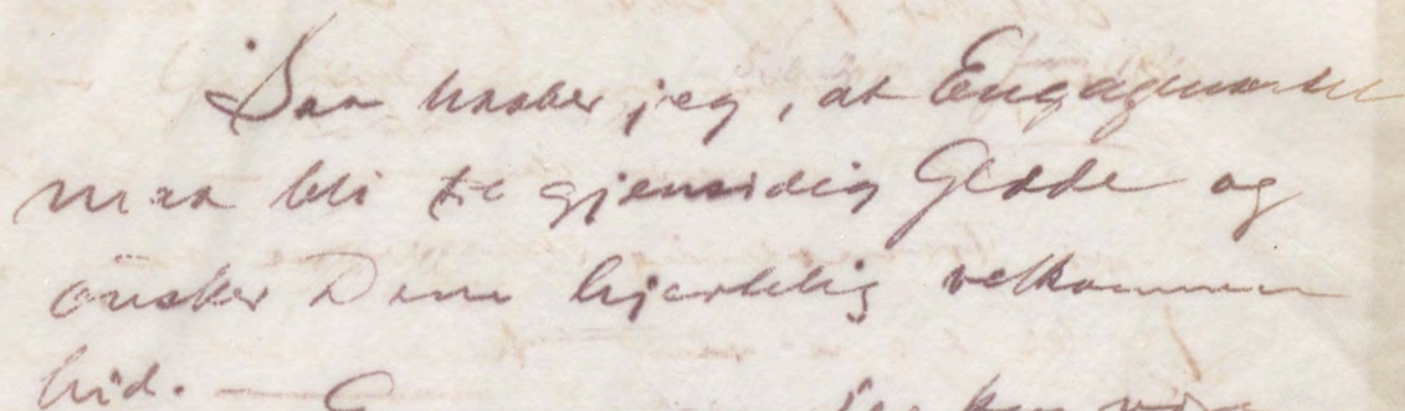 Saa haaber jeg, at Engagementet
maa bli til gjensidig Glæde og
önsker Dem hjertelig velkommen
hid. — jeg kan